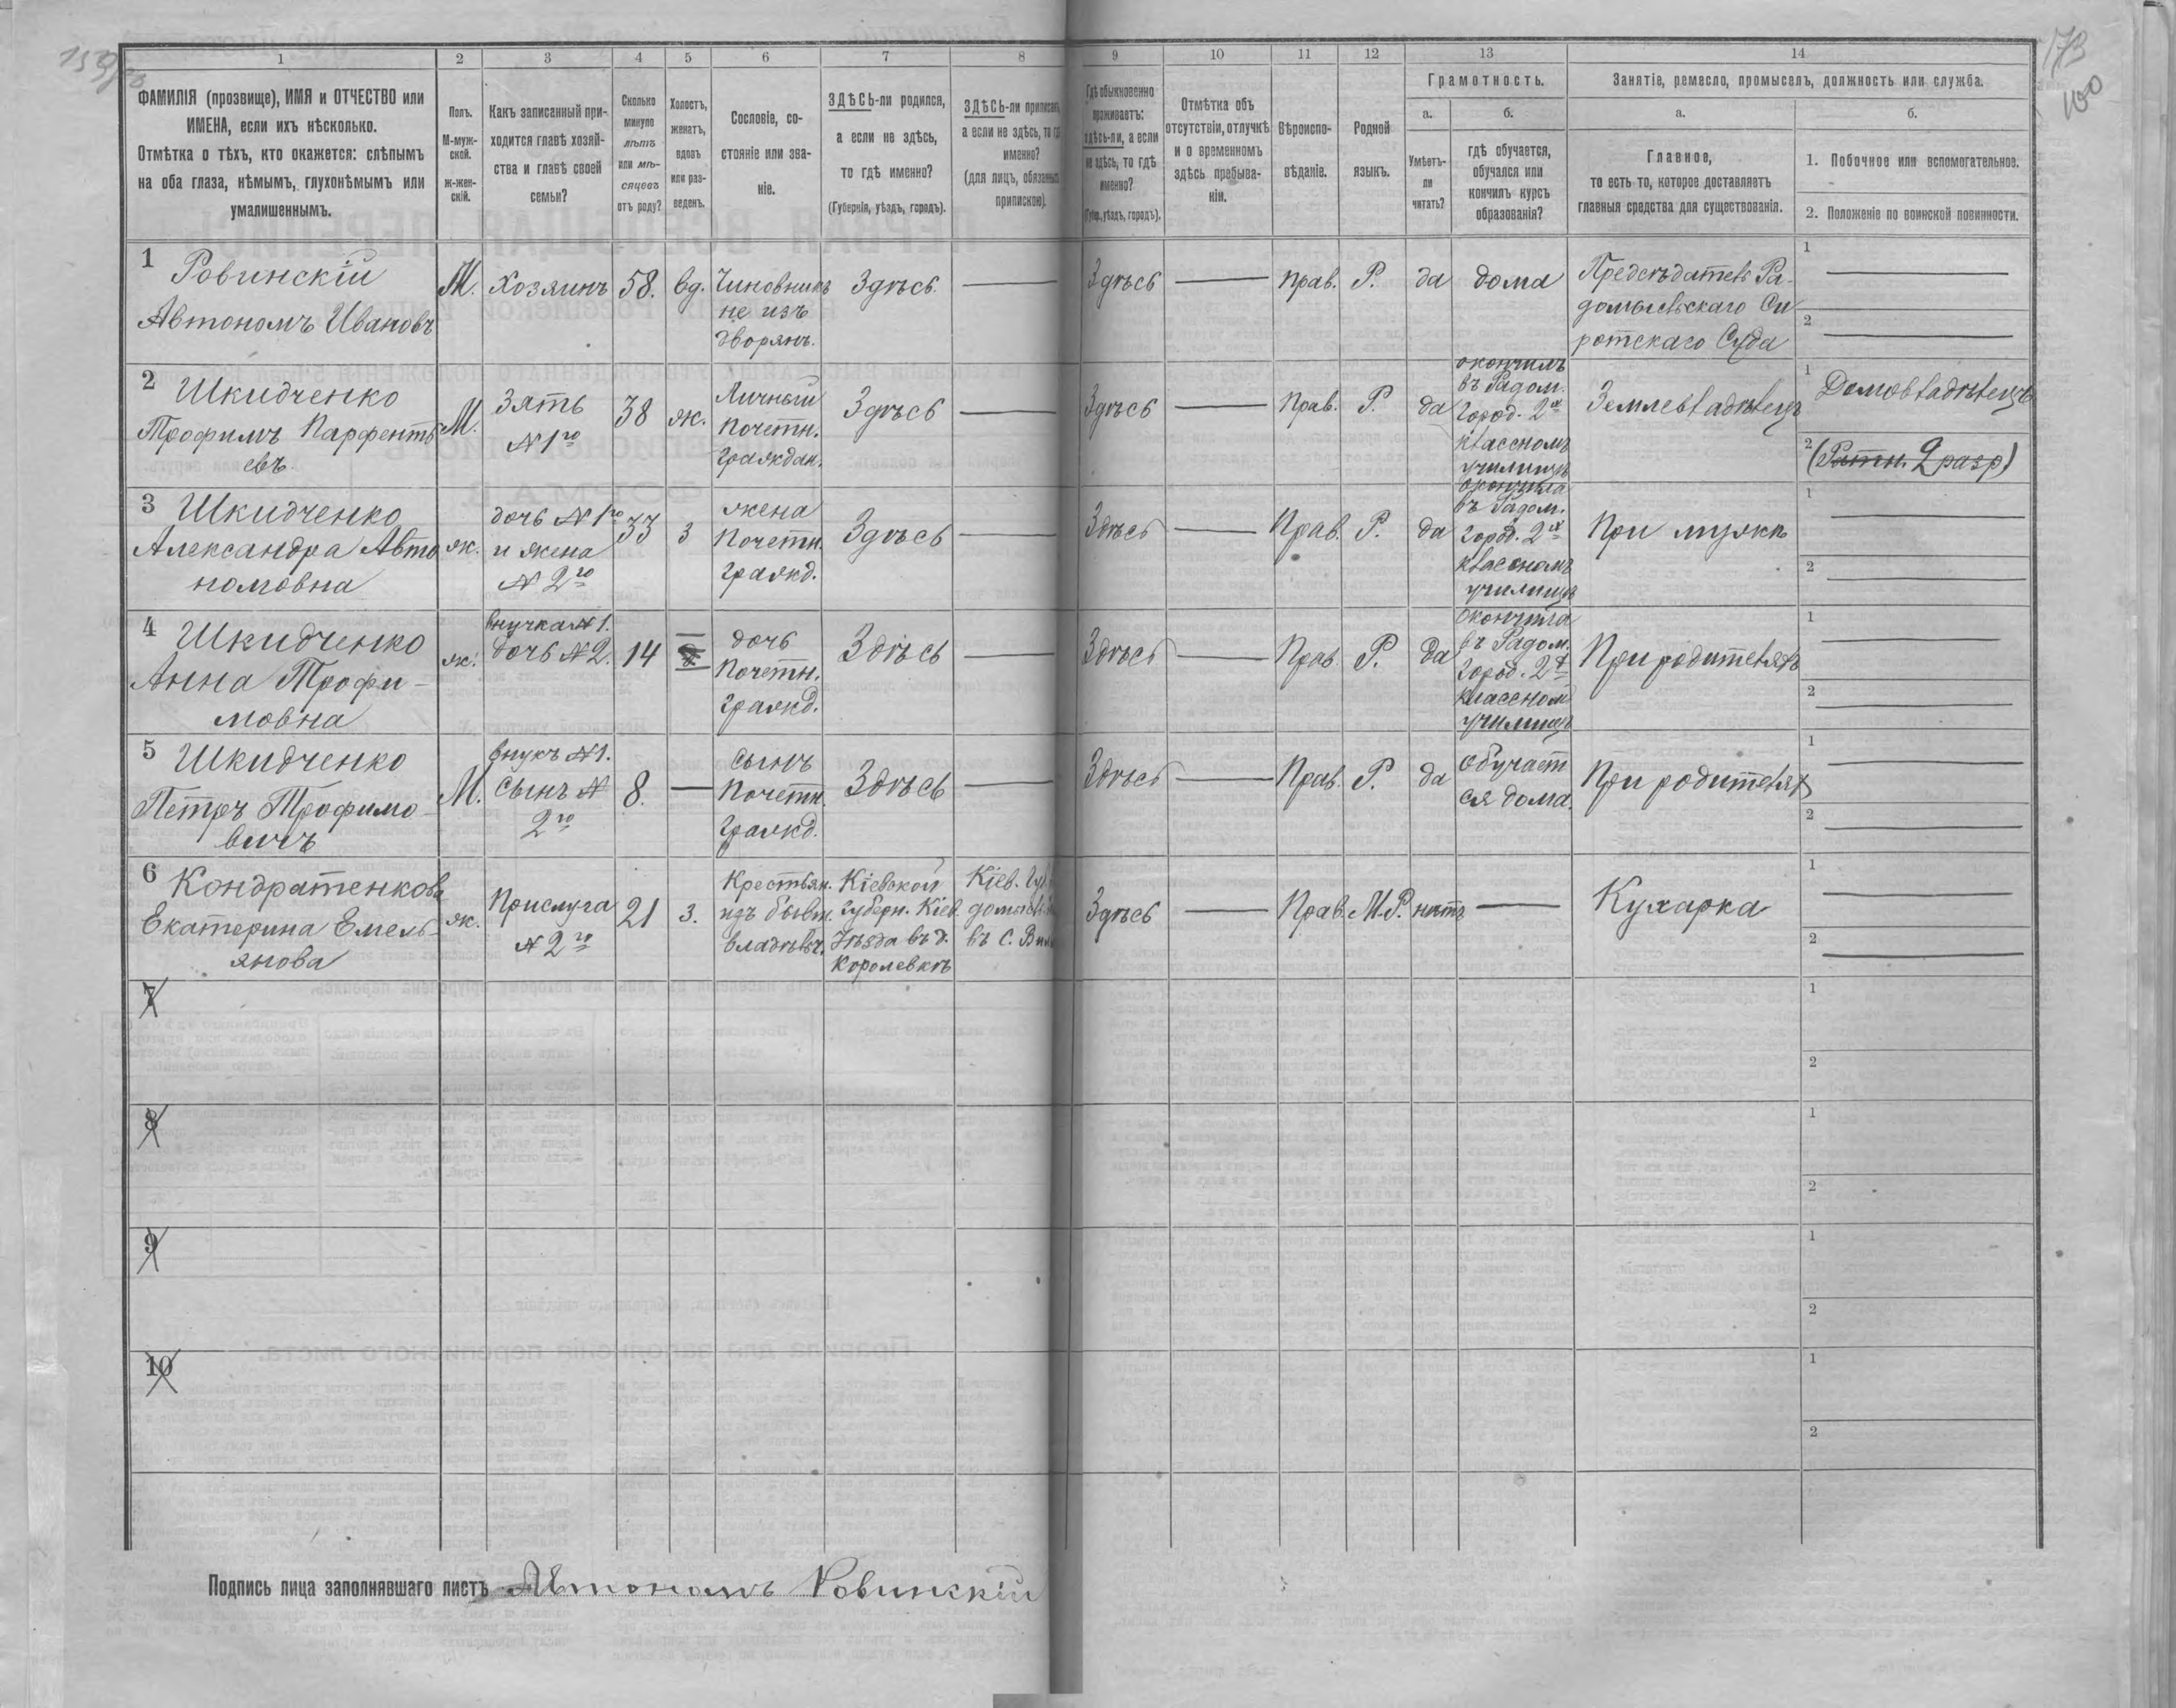 173
100
1
2
3
4
5
6
7
8
9
10
11
12
13
14
ФАМИЛІЯ (прозвище), ИМЯ и ОТЧЕСТВО или
ИМЕНА, если ихъ нѣсколько.
Отмѣтка о тѣхъ, кто окажется: слѣпымъ
на оба глаза, нѣмымъ, глухонѣмымъ или
умалишеннымъ.
Полъ.
М-муж-
ской.
ж-жен-
скій.
Какъ записанный при-
ходится главѣ хозяй-
ства и главѣ своей
семьи?
Сколько
минуло
лѣтъ
или мѣ-
сяцевъ
отъ роду?
Холостъ,
женатъ,
вдовъ
или раз-
веденъ.
Сословіе, со-
стояніе или зва-
ніе.
ЗДѢСЬ-ли родился,
а если не здѣсь,
то гдѣ именно?
(Губернія, уѣздъ, городъ).
ЗДѢСЬ-ли приписанъ,
а если не здѣсь, то гдѣ
именно?
(для лицъ, обязанныхъ
припискою).
Гдѣ обыкновенно
проживаетъ:
здѣсь-ли, а если
не здѣсь, то гдѣ
именно?
(Губ., уѣздъ, городъ).
Отмѣтка объ
отсутствіи, отлучкѣ
и о временномъ
здѣсь пребыва-
ніи.
Вѣроиспо-
вѣданіе.
Родной
языкъ.
Грамотность.
а.
б.
Умѣетъ-
ли
читать?
гдѣ обучается,
обучался или
кончилъ курсъ
образованія?
Занятіе, ремесло, промыселъ, должность или служба.
а.
б.
Главное,
то есть то, которое доставляетъ
главныя средства для существованія.
1. Побочное или вспомогательное.
2. Положеніе по воинской повинности.
1
Ровинскій
Автономъ Ивановъ
М.
Хозяинъ
58.
вд.
Чиновникъ
не изъ
дворянъ.
Здѣсь
Здѣсь
прав.
Р.
да
дома
Предсѣдатель Ра-
домысльскаго Си
ротскаго Суда
1
2
2
Шкидченко
Трофимъ Парфенть
евъ
М.
Зять
№ 1го
38
ж.
Личный
почетн.
граждан.
Здѣсь
Здѣсь
прав.
Р.
да
окончилъ
въ Радом.
город. 2х
классномъ
училищѣ
Землевладѣлецъ
1
Домовладѣлецъ
2
(Ратн. 2 разр)
3
Шкидченко
Александра Авто
номовна
ж.
дочь № 1го
и жена
№ 2го
33
з
жена
Почетн.
гражд.
Здѣсь
Здѣсь
Прав.
Р.
да
окончила
въ Радом.
город. 2х
классномъ
училищѣ
При мужѣ
1
2
4
Шкидченко
Анна Трофи-
мовна
ж.
внучка № 1.
дочь № 2.
14
дочь
Почетн.
гражд.
Здѣсь
Здѣсь
Прав.
Р.
да
окончила
въ Радом.
город. 2х
классном
училищѣ
При родителяхъ
1
2
5
Шкидченко
Петръ Трофимо-
вичъ
М.
внукъ № 1.
сынъ №
2го
8.
сынъ
Почетн.
гражд.
Здѣсь
Здѣсь
Прав.
Р.
да
обучает
ся дома.
При родителях
1
2
6
Кондратенкова
Екатерина Емель
янова
ж.
Прислуга
№ 2го
21
з.
Крестьян.
изъ бывш.
владѣльч.
Кіевской
губерн. Кіев.
Уѣзда въ д.
Королевкѣ
Кіев. Губ
въ с.
Здѣсь
Прав.
М.Р.
нѣтъ
Кухарка
1
2
7
1
2
8
1
2
9
1
2
10
1
2
Подпись лица заполнявшаго листъ Автономъ Ровинскій